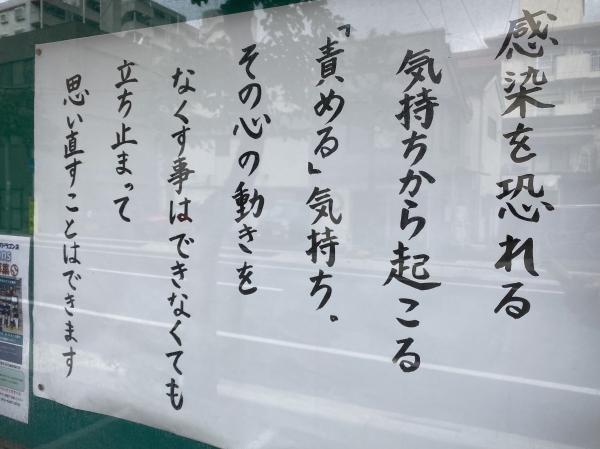 感染を恐れる
気持ちから起こる
「責める」気持ち。
その心の動きを
なくす事はできなくても
立ち止まって
思い直すことはできます